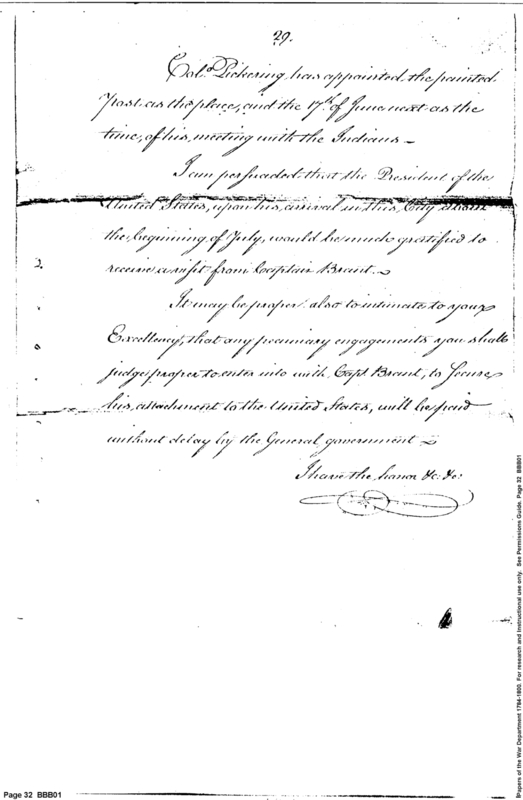 29.
Col.º Pickering has appointed the painted
Post as the place, and the 17th of June next as the
time, of his meeting with the Indians –
I am persuaded that the President of the
United States, upon his arrival in this City about
the beginning of July, would be much gratified to
receive a visit from Captain Brant. –
It may be proper also to intimate to your
Excellency, that any pecuniary engagements you shall
judge proper to enter into with Capt. Brant, to secure
his attachment to the United States, will be paid
without delay by the General government –
I have the honor &c. &c.
Page 32 BBB01
Papers of the War Department 1784-1800. For research and instructional use only. See Permissions Guide. Page 32 BBB01